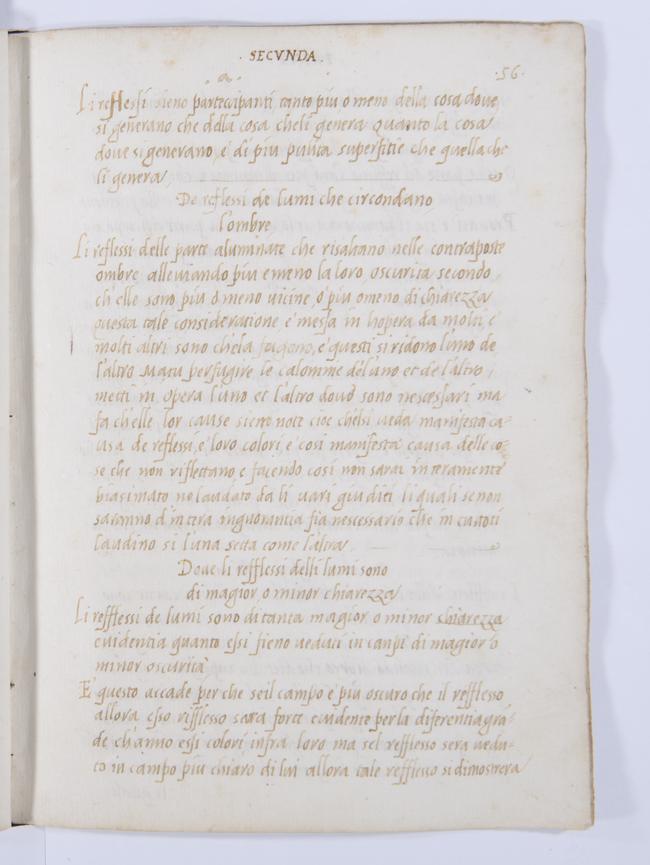 . SECVNDA .
·56·
Li reflessi sieno partecipanti tanto piu o meno della cosa dove
si generano che della cosa cheli genera quanto la cosa
dove si generano, e di piu pulita superfitie che quella che
li genera
De reflessi de lumi che circondano
l'ombre
Li reflessi delle parte aluminate che risaltano nelle contraposte
ombre alleviando piu e meno la loro, oscurita secondo
ch elle sono piu o meno vicine, o piu o meno di chiarezza
questa tale consideratione e messa in hopera da molti, e
molti altri sono chela fugono, e questi si ridono l'uno de
l'altro Ma tu per fugire le calomme del uno et de l'altro,
metti in opera l'uno et l'altro dove sono nescessari ma
fa ch elle lor cause sieno note cioe chelsi veda manifesta ca-
usa de reflessi, e loro colori, e cosi manifesta causa delle co-
se che non riflettano e facendo cosi non sarai interamente
biasimato ne laudato da li vari giuditi li quali se non
saranno d'intera ingnorantia fia nescessario che in tutto ti
laudino si l'una setta come l'altra
Dove li refflessi delli lumi sono
di magior, o minor chiarezza
Li refflessi de lumi sono di tanta magior, o minor chiarezza
evidentia quanto essi fieno veduti in canpi di magior o
minor oscurità
E questo accade per che se il campo e piu oscuro che il refflesso
allora esso rifflesso sara forte evidente per la diferentia gra-
de ch'anno essi colori infra loro ma sel refflesso sera vedu-
to in campo piu chiaro di lui allora tale refflesso si dimostrera